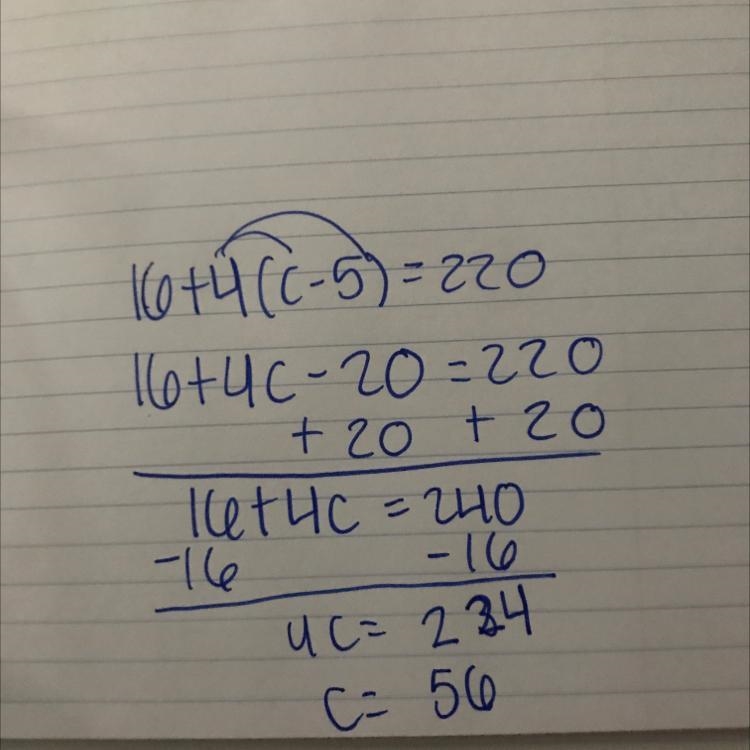 16+4(c-5)=220
16+4c-20=220
+20 +20
16+4c=240
-16 -16
4c=224
c=56